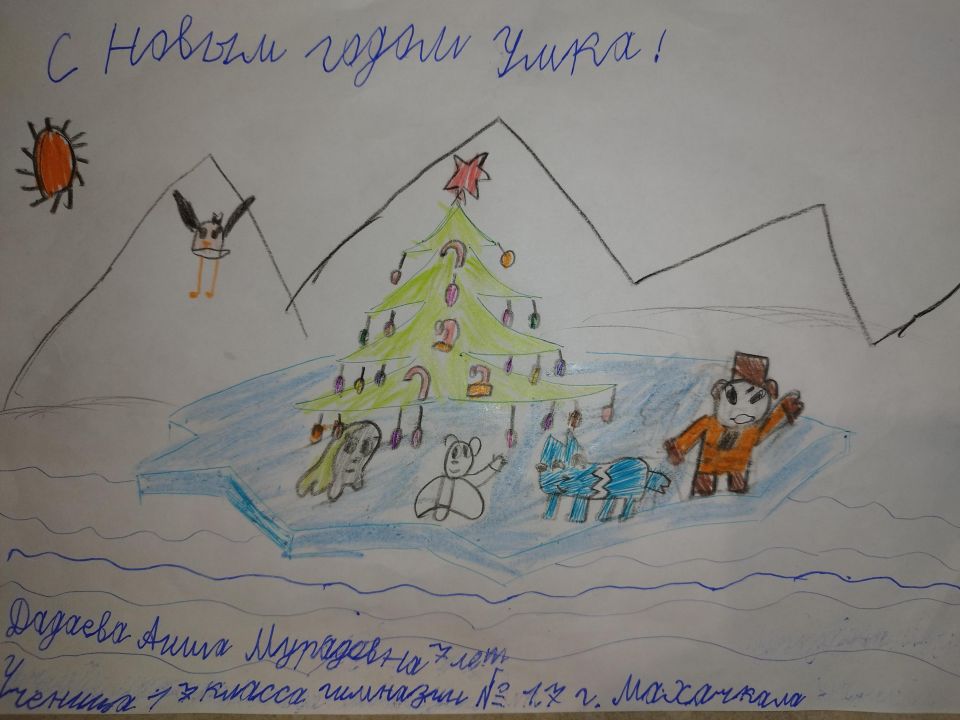 С Новым годом Умка!
Дадаева Аиша Мурадовна 7 лет
Ученица 17 класса гимназии № 17 г. Махачкала